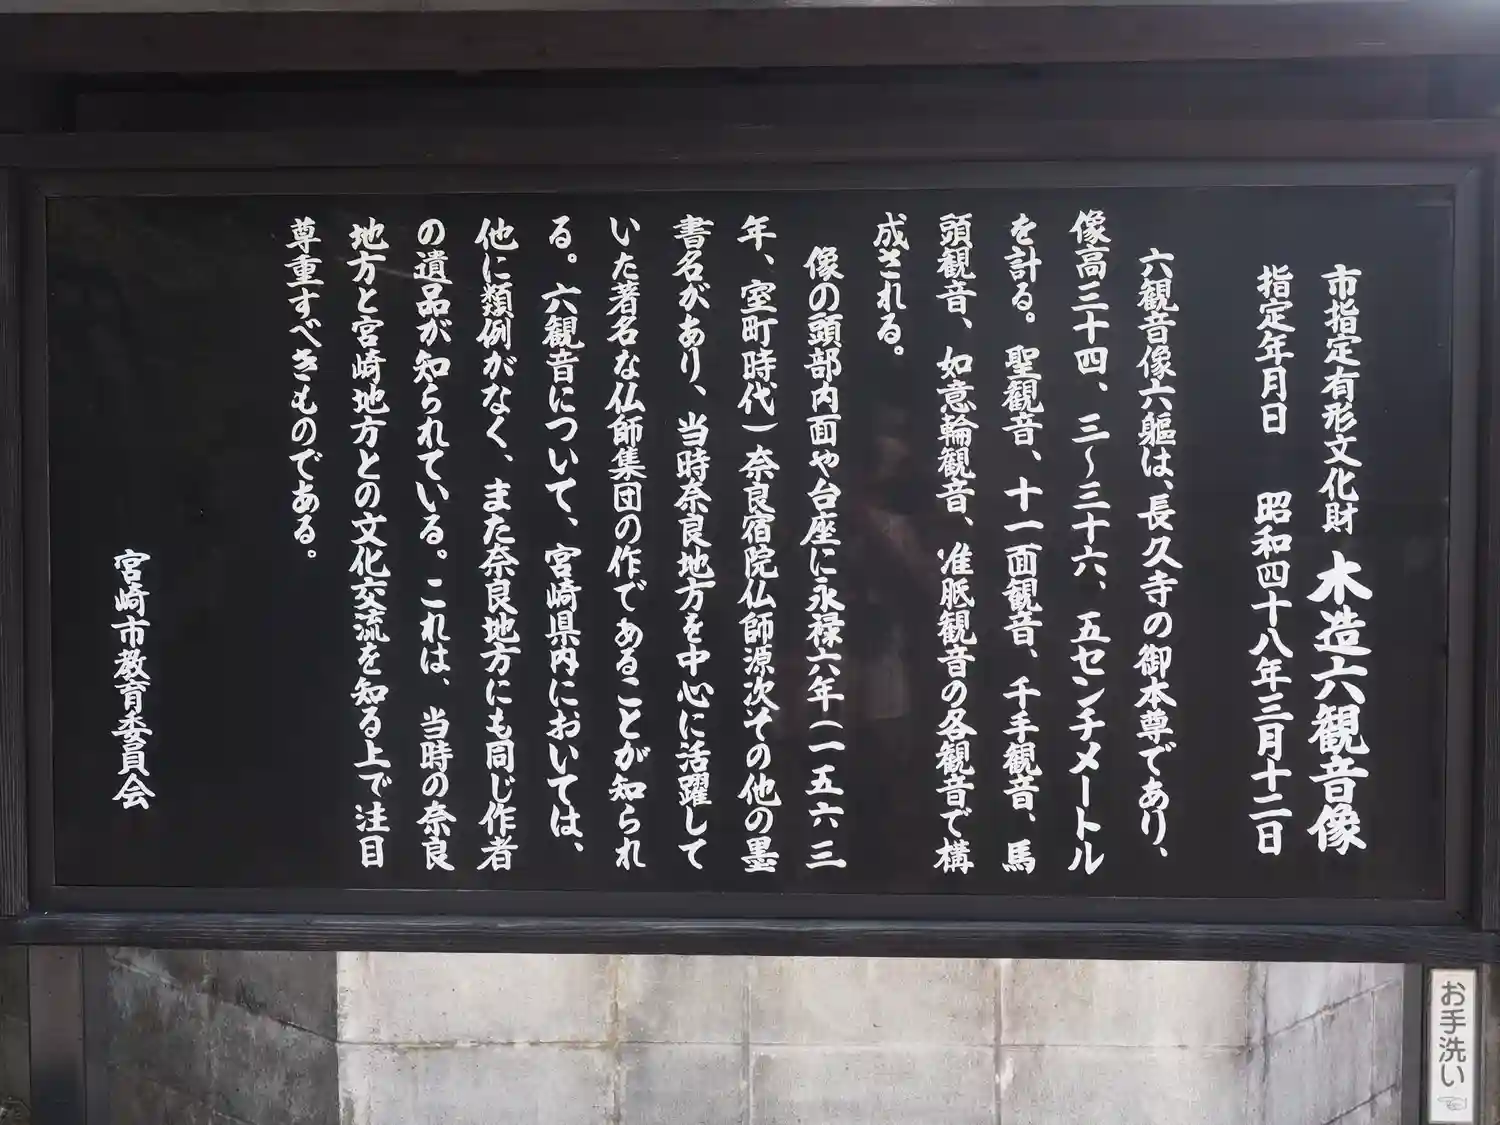 市指定有形文化財 木造六観音像
指定年月日 昭和四十八年三月十二日
六観音像六軀は、長久寺の御本尊であり、
像高三十四、三〜三十六、五センチメートル
を計る。聖観音、十一面観音、千手観音、馬
頭観音、如意輪観音、准胝観音の各観音で構
成される。
像の頭部内面や台座に永禄六年(一五六三
年、室町時代)奈良宿院仏師源次その他の墨
書名があり、当時奈良地方を中心に活躍して
いた著名な仏師集団の作であることが知られ
る。六観音について、宮崎県内においては、
他に類例がなく、また奈良地方にも同じ作者
の遺品が知られている。これは、当時の奈良
地方と宮崎地方との文化交流を知る上で注目
尊重すべきものである。
宮崎市教育委員会
お手洗い